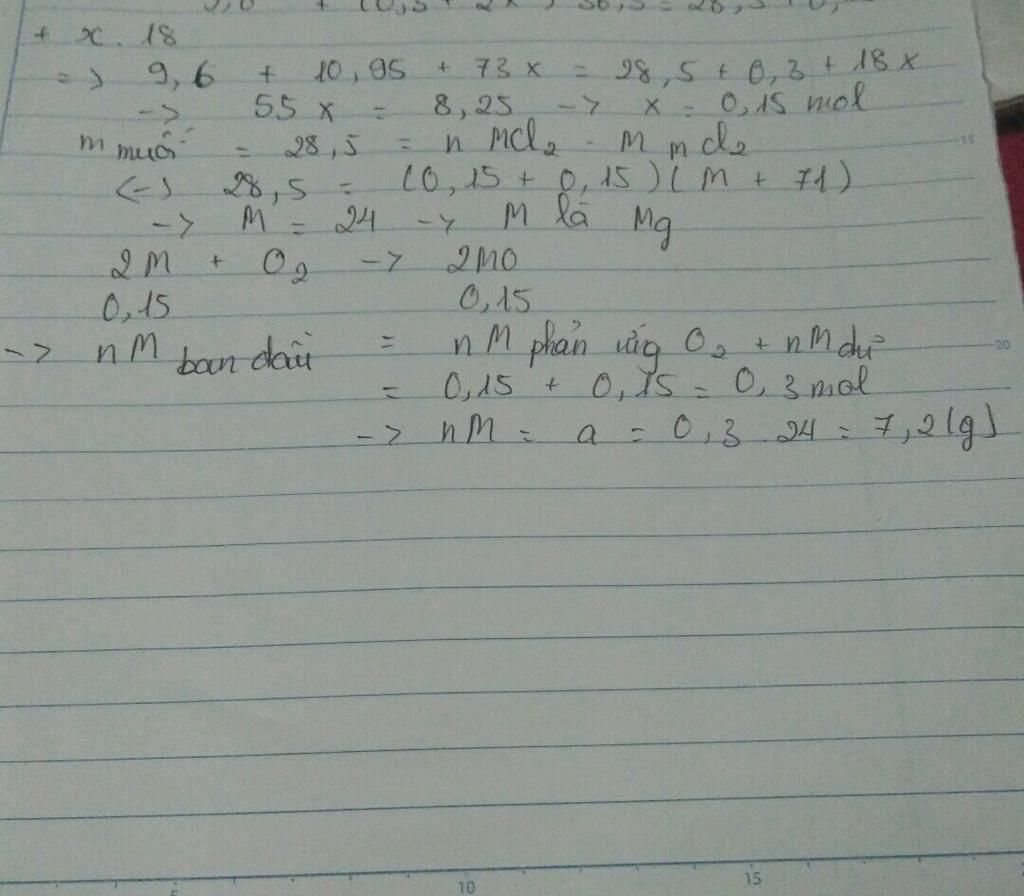 + (0,3 + 2x) 36,5 = 28,5 + 0,
+ x. 18
=> 9,6 + 10,95 + 73x = 28,5 + 0,3 + 18x
-> 55x = 8,25 -> x = 0,15 mol
m muối = 28,5 = n MCl2 . M MCl2
(-) 28,5 = (0,15 + 0,15)(M + 71)
-> M = 24 -> M là Mg
2M + O2 -> 2MO
0,15 0,15
-> nM ban đầu = nM phản ứng O2 + nM dư
= 0,15 + 0,15 = 0,3 mol
-> nM = a = 0,3 . 24 = 7,2 (g)
15
20
5 10 15